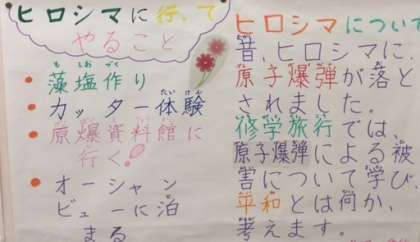 ヒロシマに行って
やること
藻塩作り
カッター体験
原爆資料館に
行く!
オーシャン
ビューに泊
まる
ヒロシマについて
昔、ヒロシマに、
原子爆弾が落と
されました。
修学旅行では、
原子爆弾による被
害について学び
平和とは何か、
考えます。